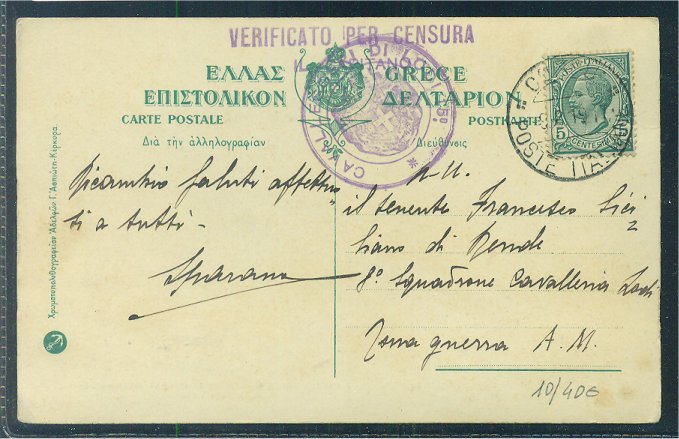 VERIFICATO PER CENSURA
ΕΛΛΑΣ GRECE
ΕΠΙΣΤΟΛΙΚΟΝ ΔΕΛΤΑΡΙΟΝ
CARTE POSTALE POSTKARTE
Διὰ τὴν ἀλληλογραφίαν Διεύθυνσις
POSTE ITALIANE
5 CENTESIMI
POSTE ITALIANE
CAVALLEGGERI DI LODI (15º)
Ricambio saluti affettuo
si a tutti
Sparano
N. U.
il tenente Francesco Sici
liano di Rende
8º Squadrone Cavalleria Lodi
Zona guerra A. M.
10/406
Χρωματολιθογραφείον Ἀδελφῶν Γ. Ἀσπιώτη-Κέρκυρα.